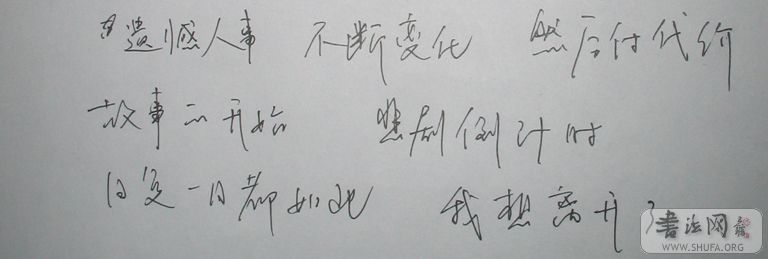 遗憾人事 不断变化 然后付代价
故事的开始 悲剧倒计时
日复一日都如此 我想离开了
书法网
WWW.SHUFA.ORG